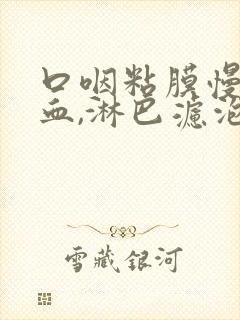 口咽粘膜慢
血,淋巴滤泡
雪藏银河